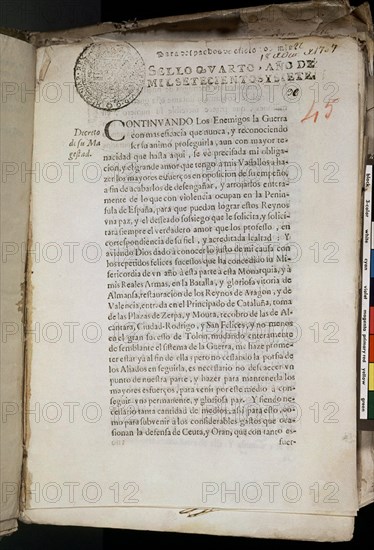 SELLO QVARTO, AÑO DE
MIL SETECIENTOS Y SIETE.
45
Decreto
de su Ma
gestad.
CONTINVANDO Los Enemigos la Guerra
con mas eficacia que nunca, y reconociendo
ser su animo proseguirla, aun con mayor te-
nacidad que hasta aqui, se vè precisada mi obliga-
cion, y el grande amor que tengo à mis Vassallos à ha-
zer los mayores esfuerços en oposicion de su empeño,
a fin de acabarlos de desengañar, y arrojarlos entera-
mente de lo que con violencia ocupan en la Penin-
sula de España, para que puedan lograr estos Reynos
vna paz, y el deseado sossiego que les solicita, y solici-
tarà siempre el verdadero amor que les professo, en
correspondiencia de su fiel, y acreditada lealtad: Y
aviendo Dios dado à conocer lo justo de mi causa con
los repetidos felices sucessos que ha concedido su Mi-
sericordia de vn año à esta parte à esta Monarquia, y à
mis Reales Armas, en la Batalla, y gloriosa vitoria de
Almansa, restauracion de los Reynos de Aragon, y de
Valencia, entrada en el Principado de Cataluña, toma
de las Plazas de Zerpa, y Moura, recobro de las de Al-
cantara, Ciudad-Rodrigo, y San Felices, y no menos
en el gran sucesso de Tolon, mudando enteramente
de semblante el sistema de la Guerra, me haze prome-
ter estar yà al fin de ella; pero no cessando la porfia de
los Aliados en seguirla, es necessario no descaecer vn
punto de nuestra parte, y hazer para mantenerla los
mayores esfuerços, para venir por este medio à con-
seguir vna permanente, y gloriosa paz. Y siendo ne-
cessario tanta cantidad de medios, assi para esto, co-
mo para subvenir à los considerables gastos que oca-
sionan la defensa de Ceuta, y Oran, que con tanto es-
fuer-